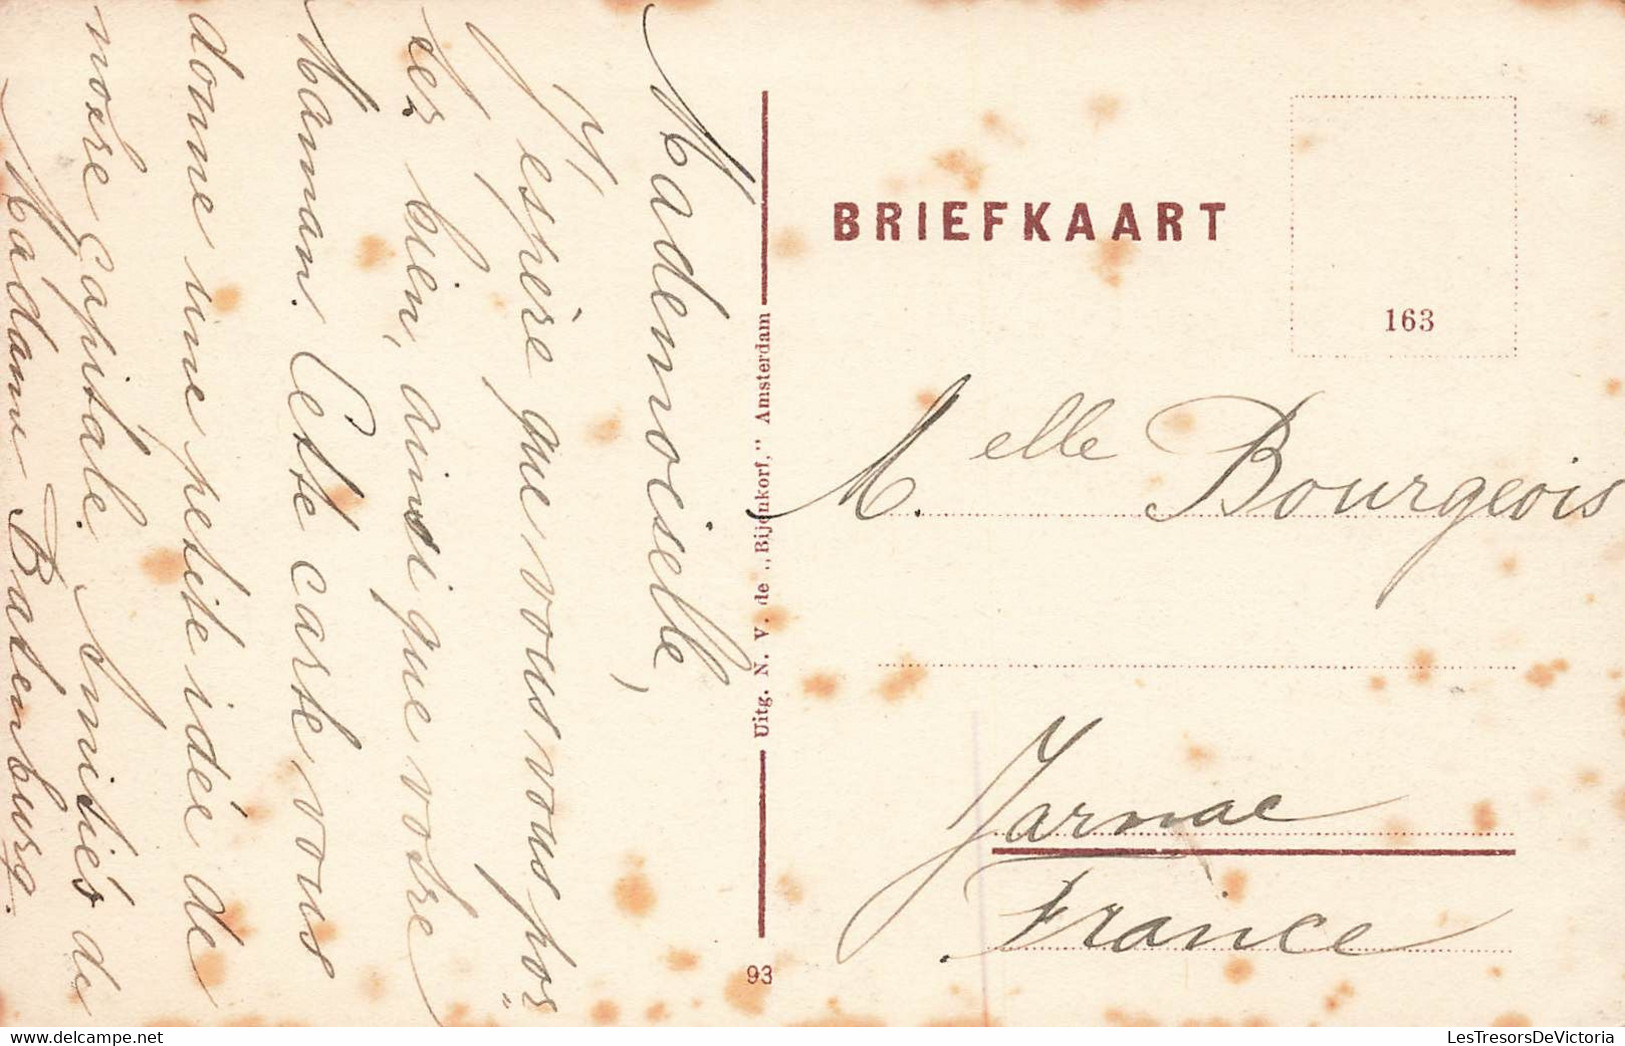 Mademoiselle,
J'espère que vous vous por=
tez bien, ainsi que votre
Maman. Cette carte vous
donne une petite idée de
notre Capitale. Amitiés de
Madame Badenburg.
Uitg. N. V. de „Bijenkorf," Amsterdam
93
BRIEFKAART
163
M.elle Bourgeois
Jarnac
France
LesTresorsDeVictoria.com